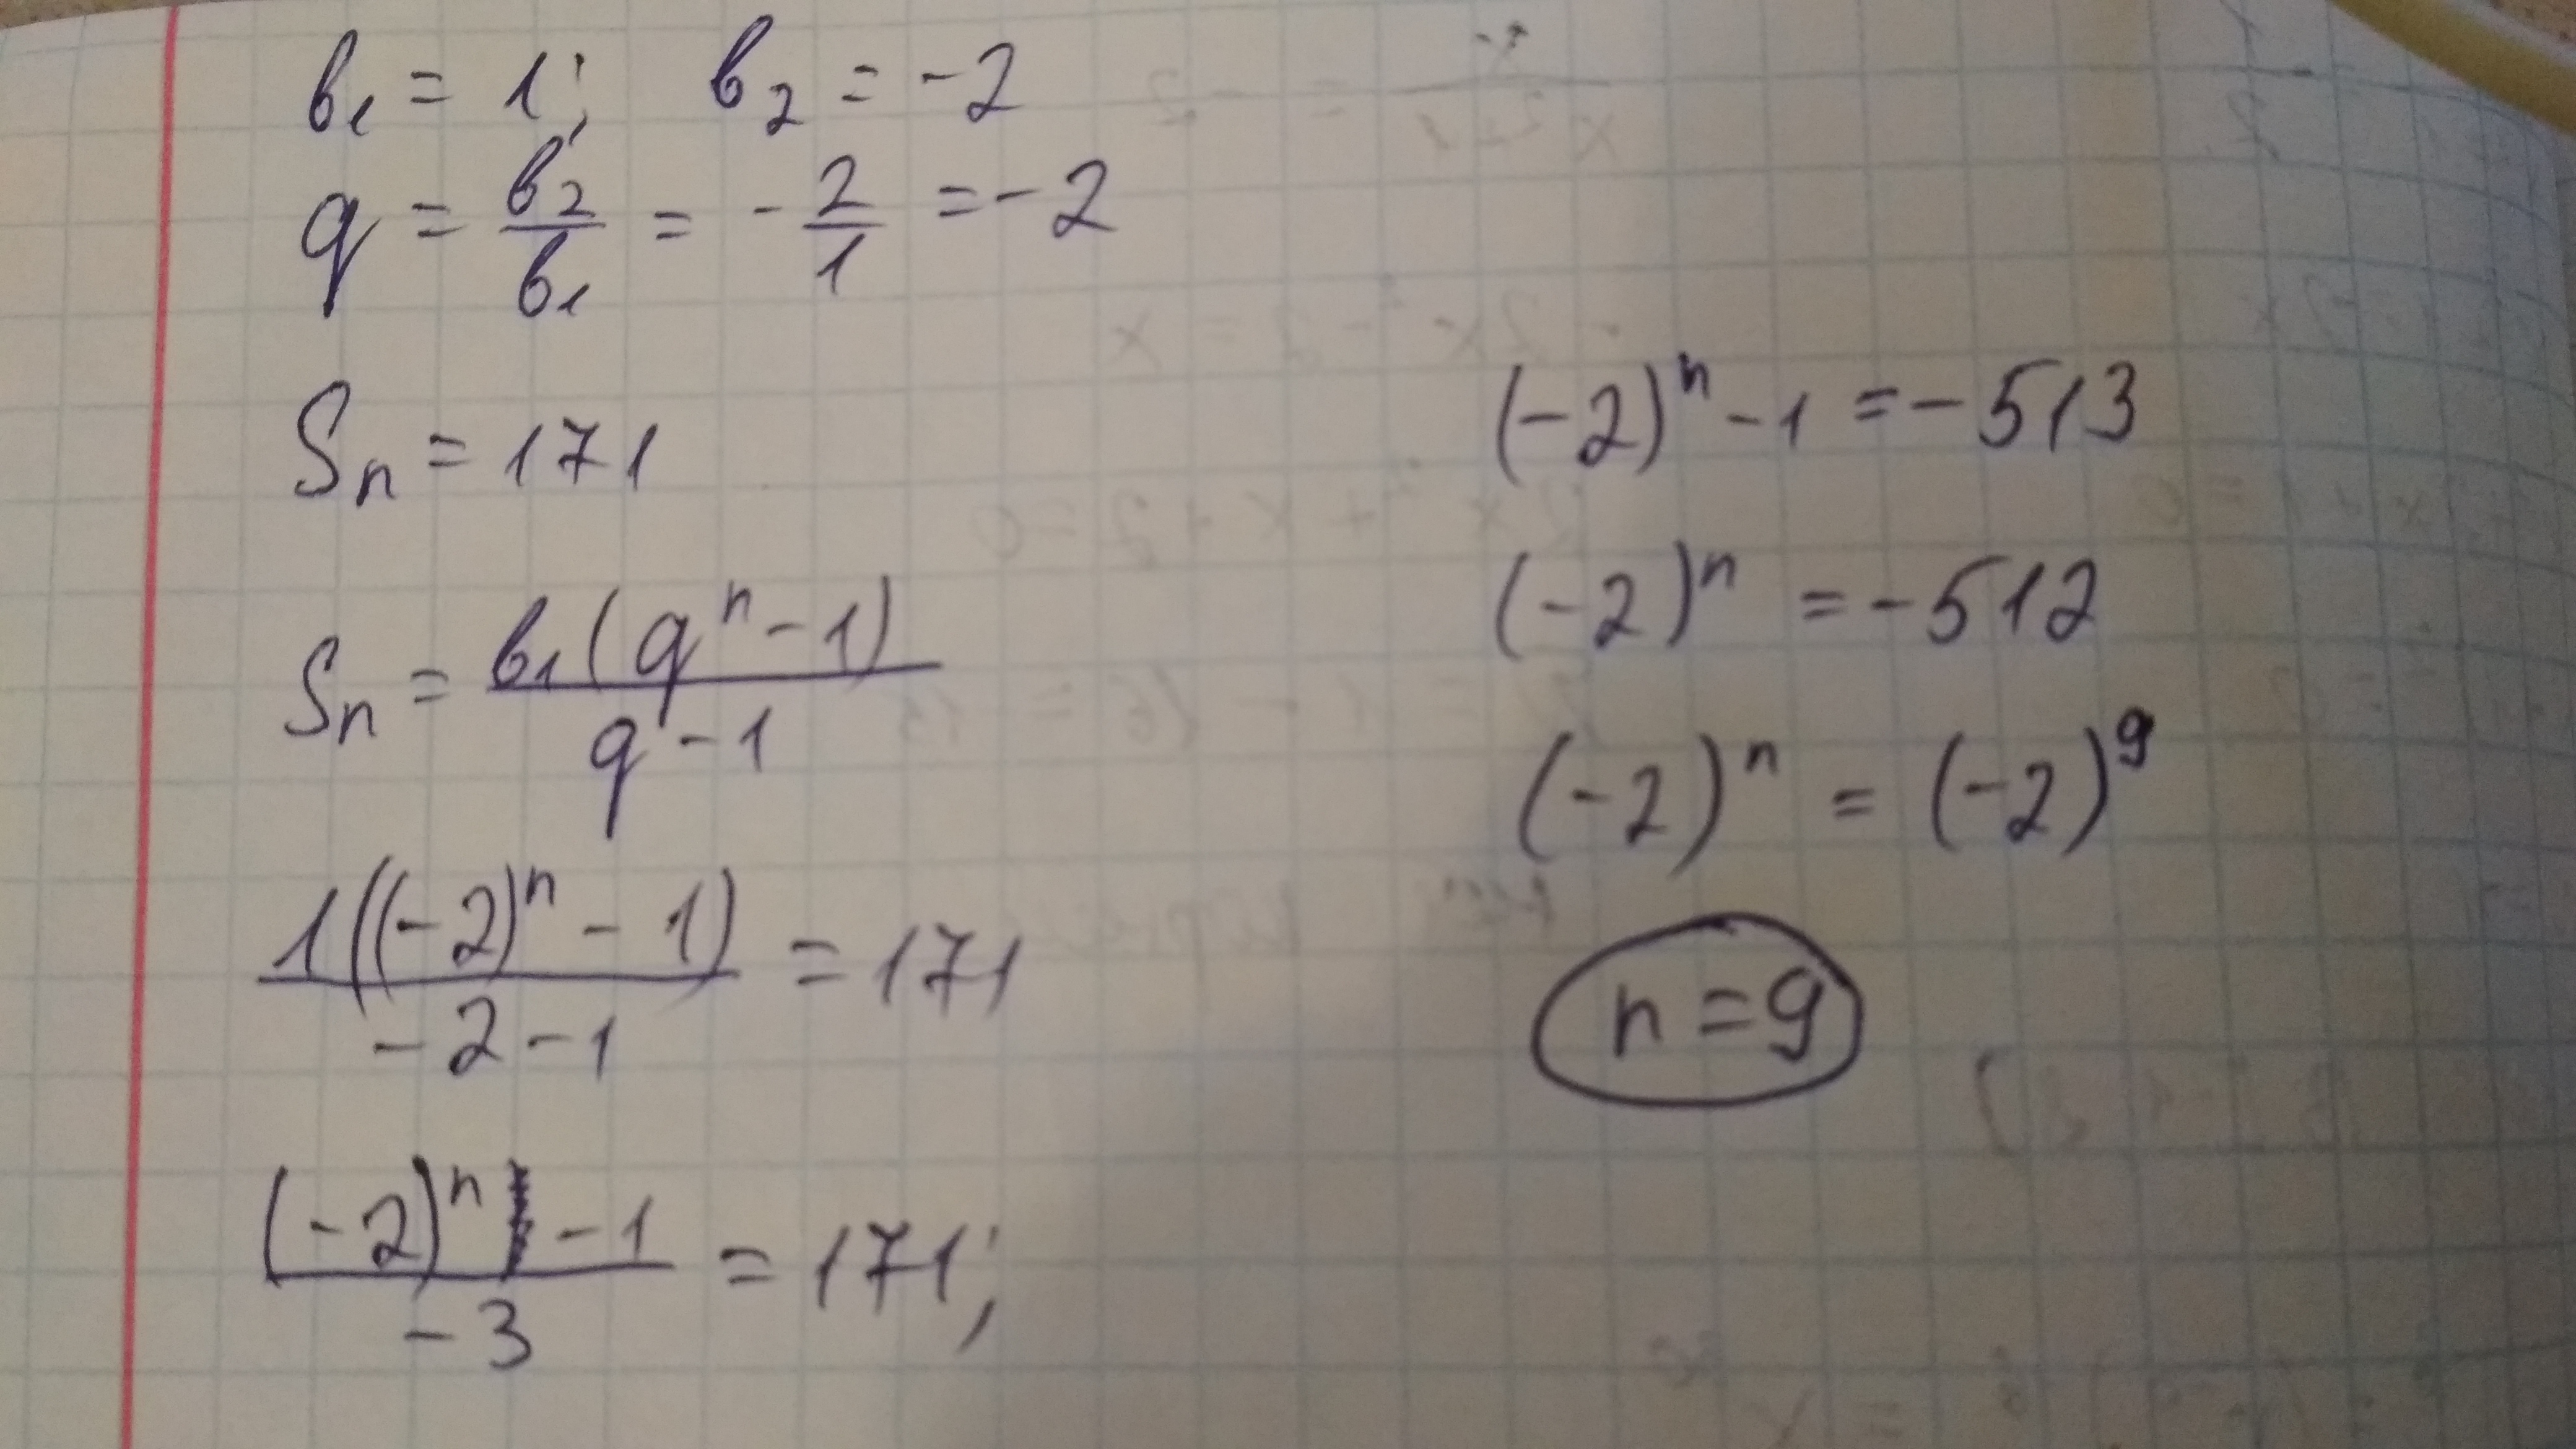 b₁ = 1; b₂ = -2
q = b₂/b₁ = -2/1 = -2
Sₙ = 171
Sₙ = b₁(qⁿ - 1)/(q - 1)
1((-2)ⁿ - 1)/(-2 - 1) = 171
((-2)ⁿ - 1)/(-3) = 171;
(-2)ⁿ - 1 = -513
(-2)ⁿ = -512
(-2)ⁿ = (-2)⁹
n = 9